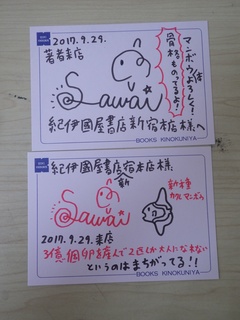 2017.9.29.
著者来店
マンボウ体よろしく!
骨格ものってるよ!
Sawai
紀伊國屋書店新宿本店様へ
BOOKS KINOKUNIYA
紀伊國屋書店新宿本店様
Sawai
新種
カクレマンボウ
2017.9.29.来店
3億個卵を産んで2匹しか大人になれない
というのはまちがってる!!
BOOKS KINOKUNIYA